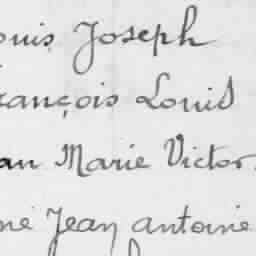 ouis Joseph
rançois Louis
an Marie Victor.
né Jean antoine